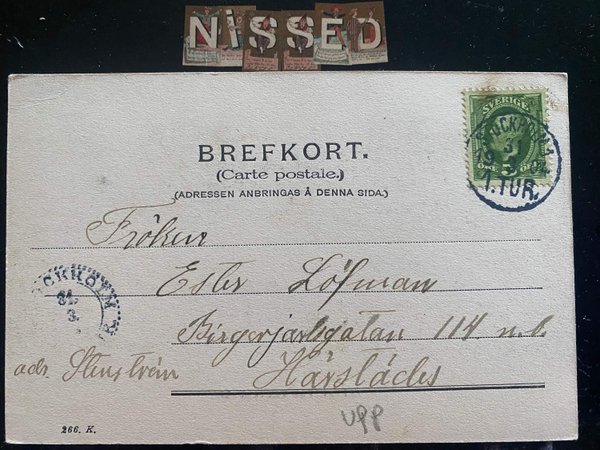 NiSSED
BREFKORT.
(Carte postale.)
(ADRESSEN ANBRINGAS Å DENNA SIDA.)
SVERIGE
STOCKHOLM 1
31
19 3
1.TUR.
Fröken
Ester Löfman
Birgerjarlsgatan 114. n. b.
Härstädes
adr. Stenström
CKHOLM
31.
3.
266. K.
upp